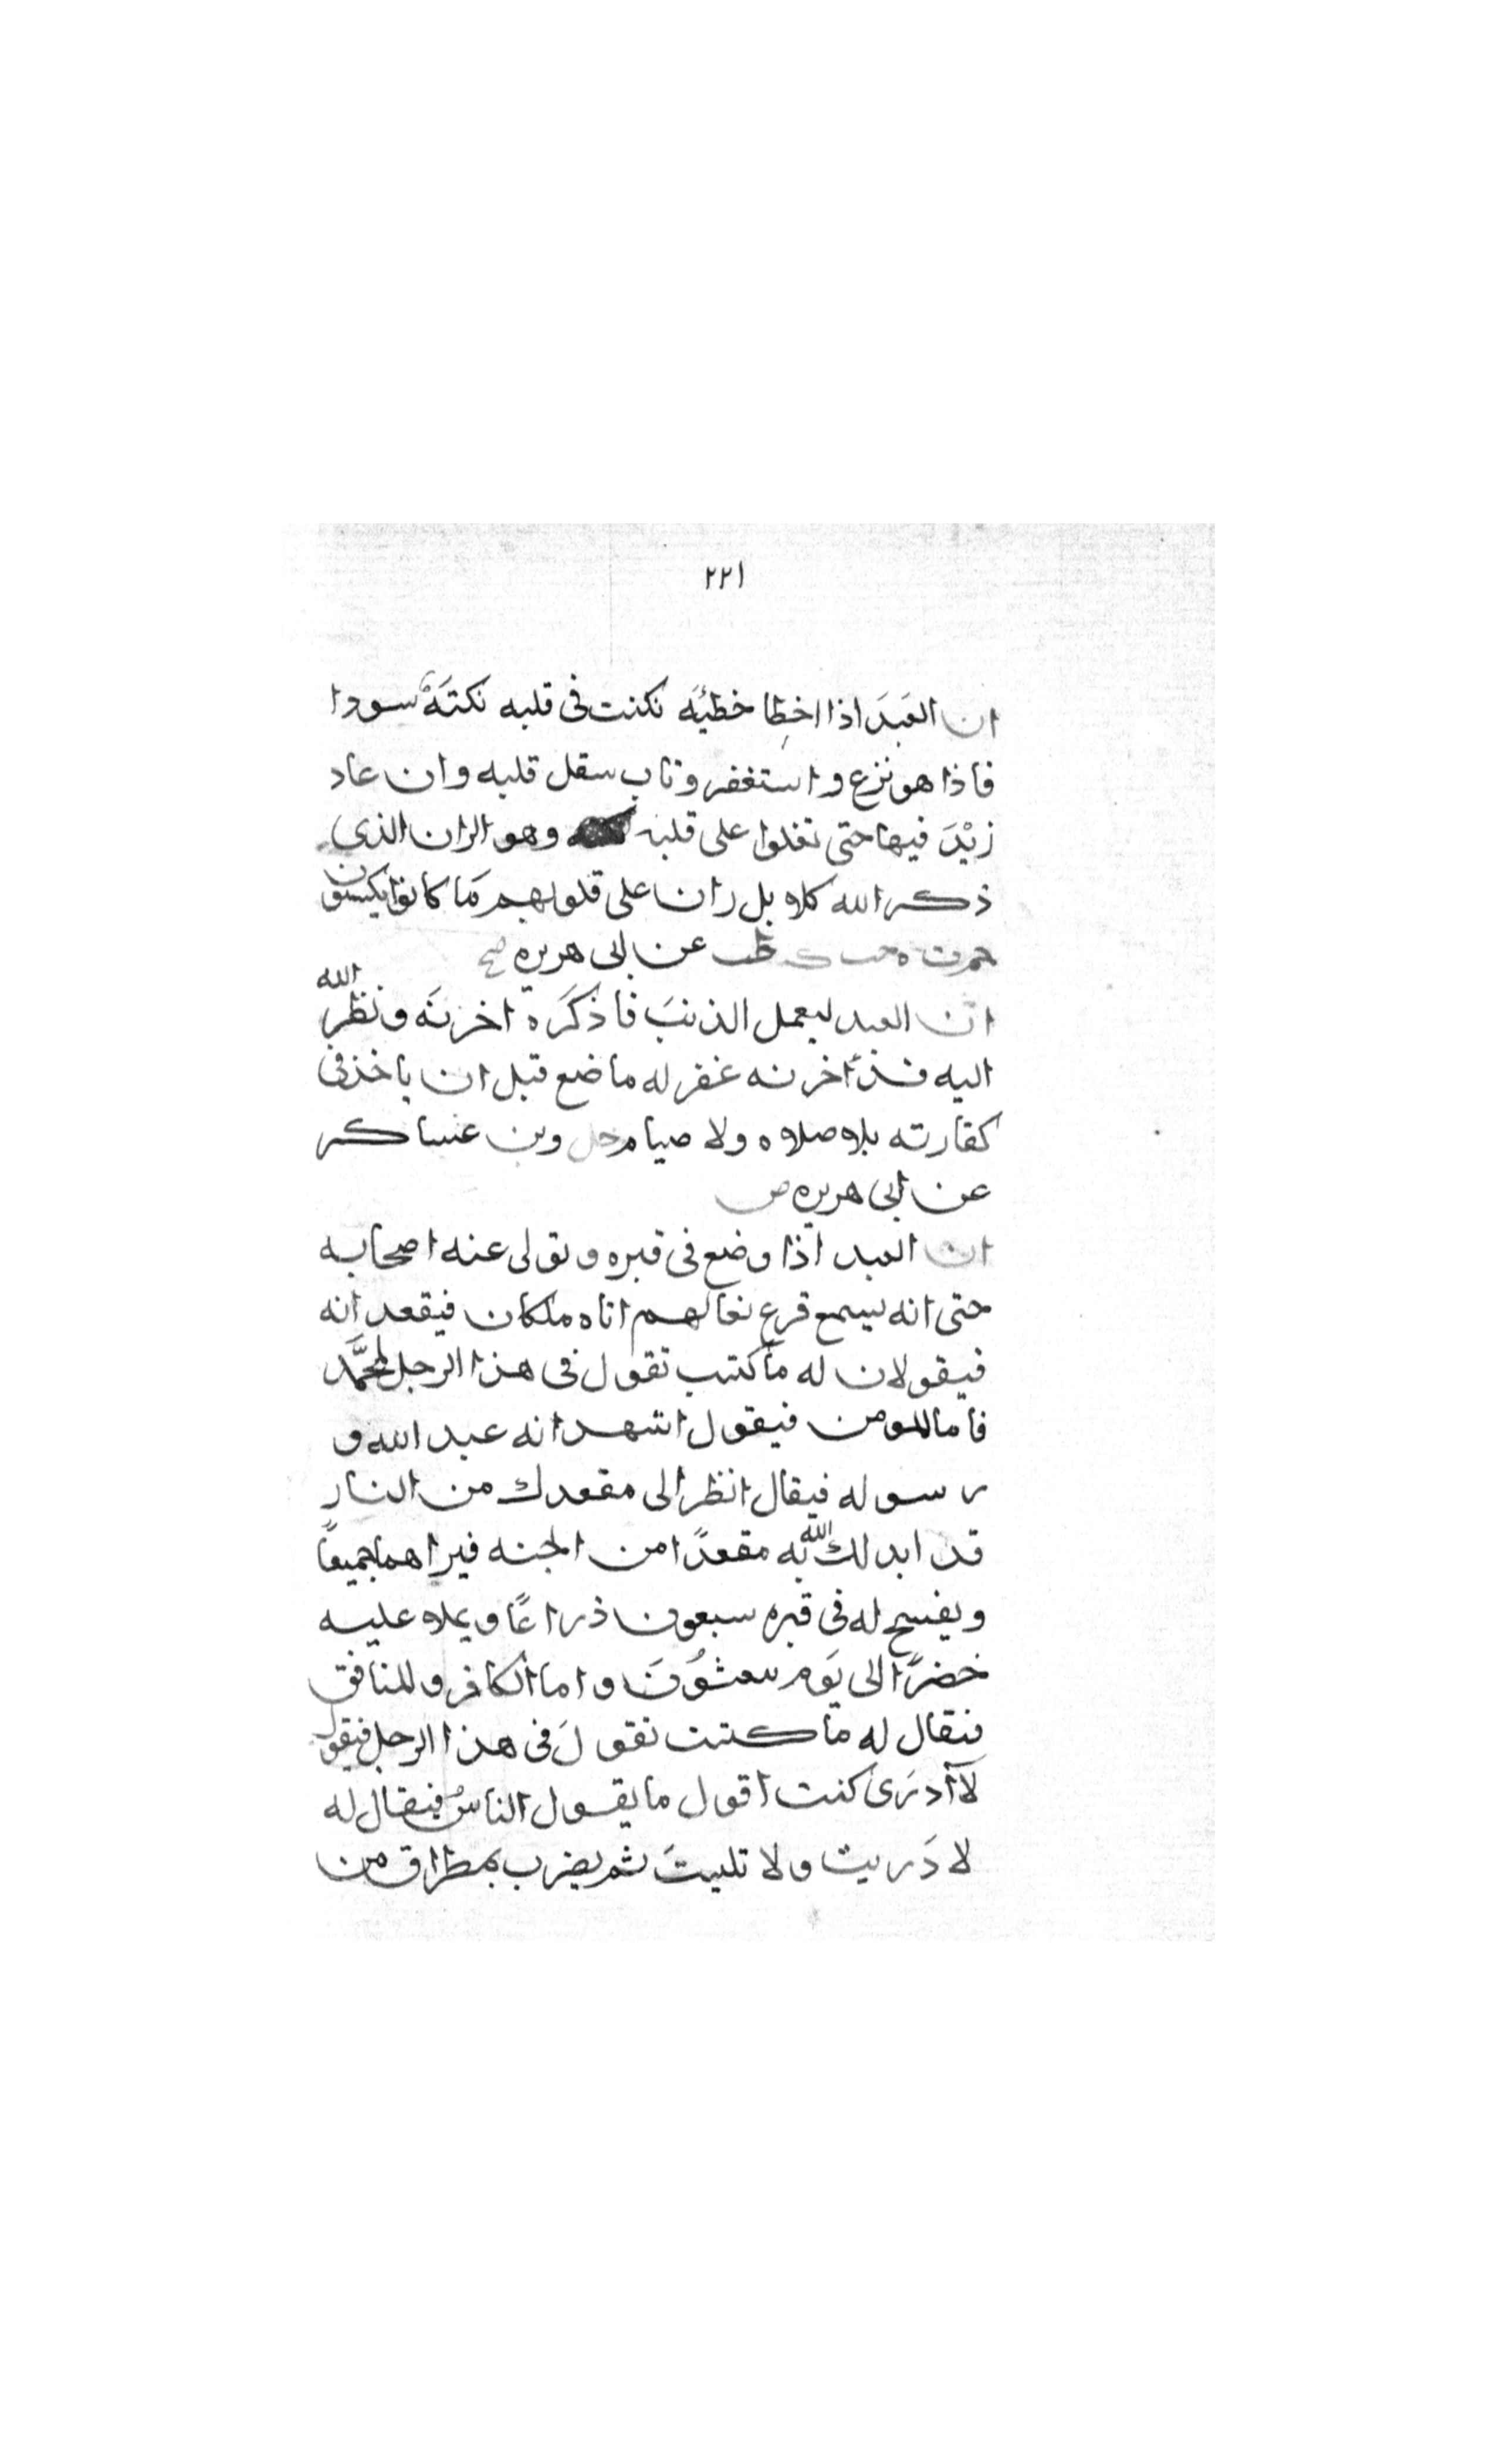 ٢٢١
ان العَبدَ اذا اخطا خطئيَه نكنت فى قلبه نكتَةً سودا
فاذا هو نزع واستغفر وتاب سقل قلبه وان عاد
زيْدَ فيها حتى تغلوا على قلبه وهو الران الذى
ذكر الله كلا بل ران على قلوبهم مَا كانوا يكسبون
حم ت ه حب ك هب عن ابى هريره صح
ان العبد ليعمل الذنبَ فاذكَره اخزنَه ونظر الله
اليه قد اخرنه غفر له ما ضع قبل ان ياخذ فى
كفارته بلا صلاه ولا صيام حل وبن عساكر
عن ابى هريره ض
ان العبد اذا وضع فى قبره وتولى عنه اصحابه
حتى انه ليسمع قرع نعالهم اتاه ملكان فيقعدانه
فيقولان له ما كنت تقول فى هذا الرجل لمحمَّد
فاما المومن فيقول اشهد انه عبد الله و
رسوله فيقال انظر الى مقعدك من النار
قد ابدلك الله به مقعدًا من الجنه فيراهما جميعًا
ويفسح له فى قبره سبعون ذراعًا ويملا عليه
خضرًا الى يَوم يبعثوُنَ واما الكافر والمنافق
فيقال له ما كنت تقولَ فى هذا الرجل فيقول
لا ادرَى كنت اقول ما يقول الناسُ فيقال له
لا دَريت ولا تليتَ ثم يضرب بمطراق من